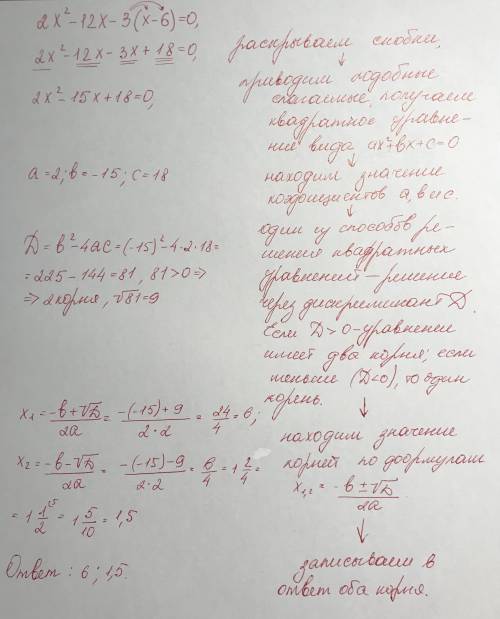 2x²-12x-3(x-6)=0,
2x²-12x-3x+18=0,
2x²-15x+18=0,
a=2; b=-15; c=18
D=b²-4ac=(-15)²-4·2·18=
=225-144=81, 81>0=>
=> 2 корня, √81=9
x₁=(-b+√D)/2a=(-(-15)+9)/(2·2)=24/4=6;
x₂=(-b-√D)/2a=(-(-15)-9)/(2·2)=6/4=1 2/4=
=1 1/2 ⁵=1 5/10=1,5
Ответ: 6; 1,5.
раскрываем скобки,
↓
приводим подобные
слагаемые, получаем
квадратное уравне-
ние вида ax²+bx+c=0
↓
находим значение
коэфициентов a, b и c.
↓
один из способов ре-
шения квадратных
уравнений - решение
через дискриминант D.
Если D>0-уравнение
имеет два корня; если
меньше (D<0), то один
корень.
↓
находим значение
корней по формулам
x₁,₂=(-b±√D)/2a
↓
записываем в
ответ оба корня.